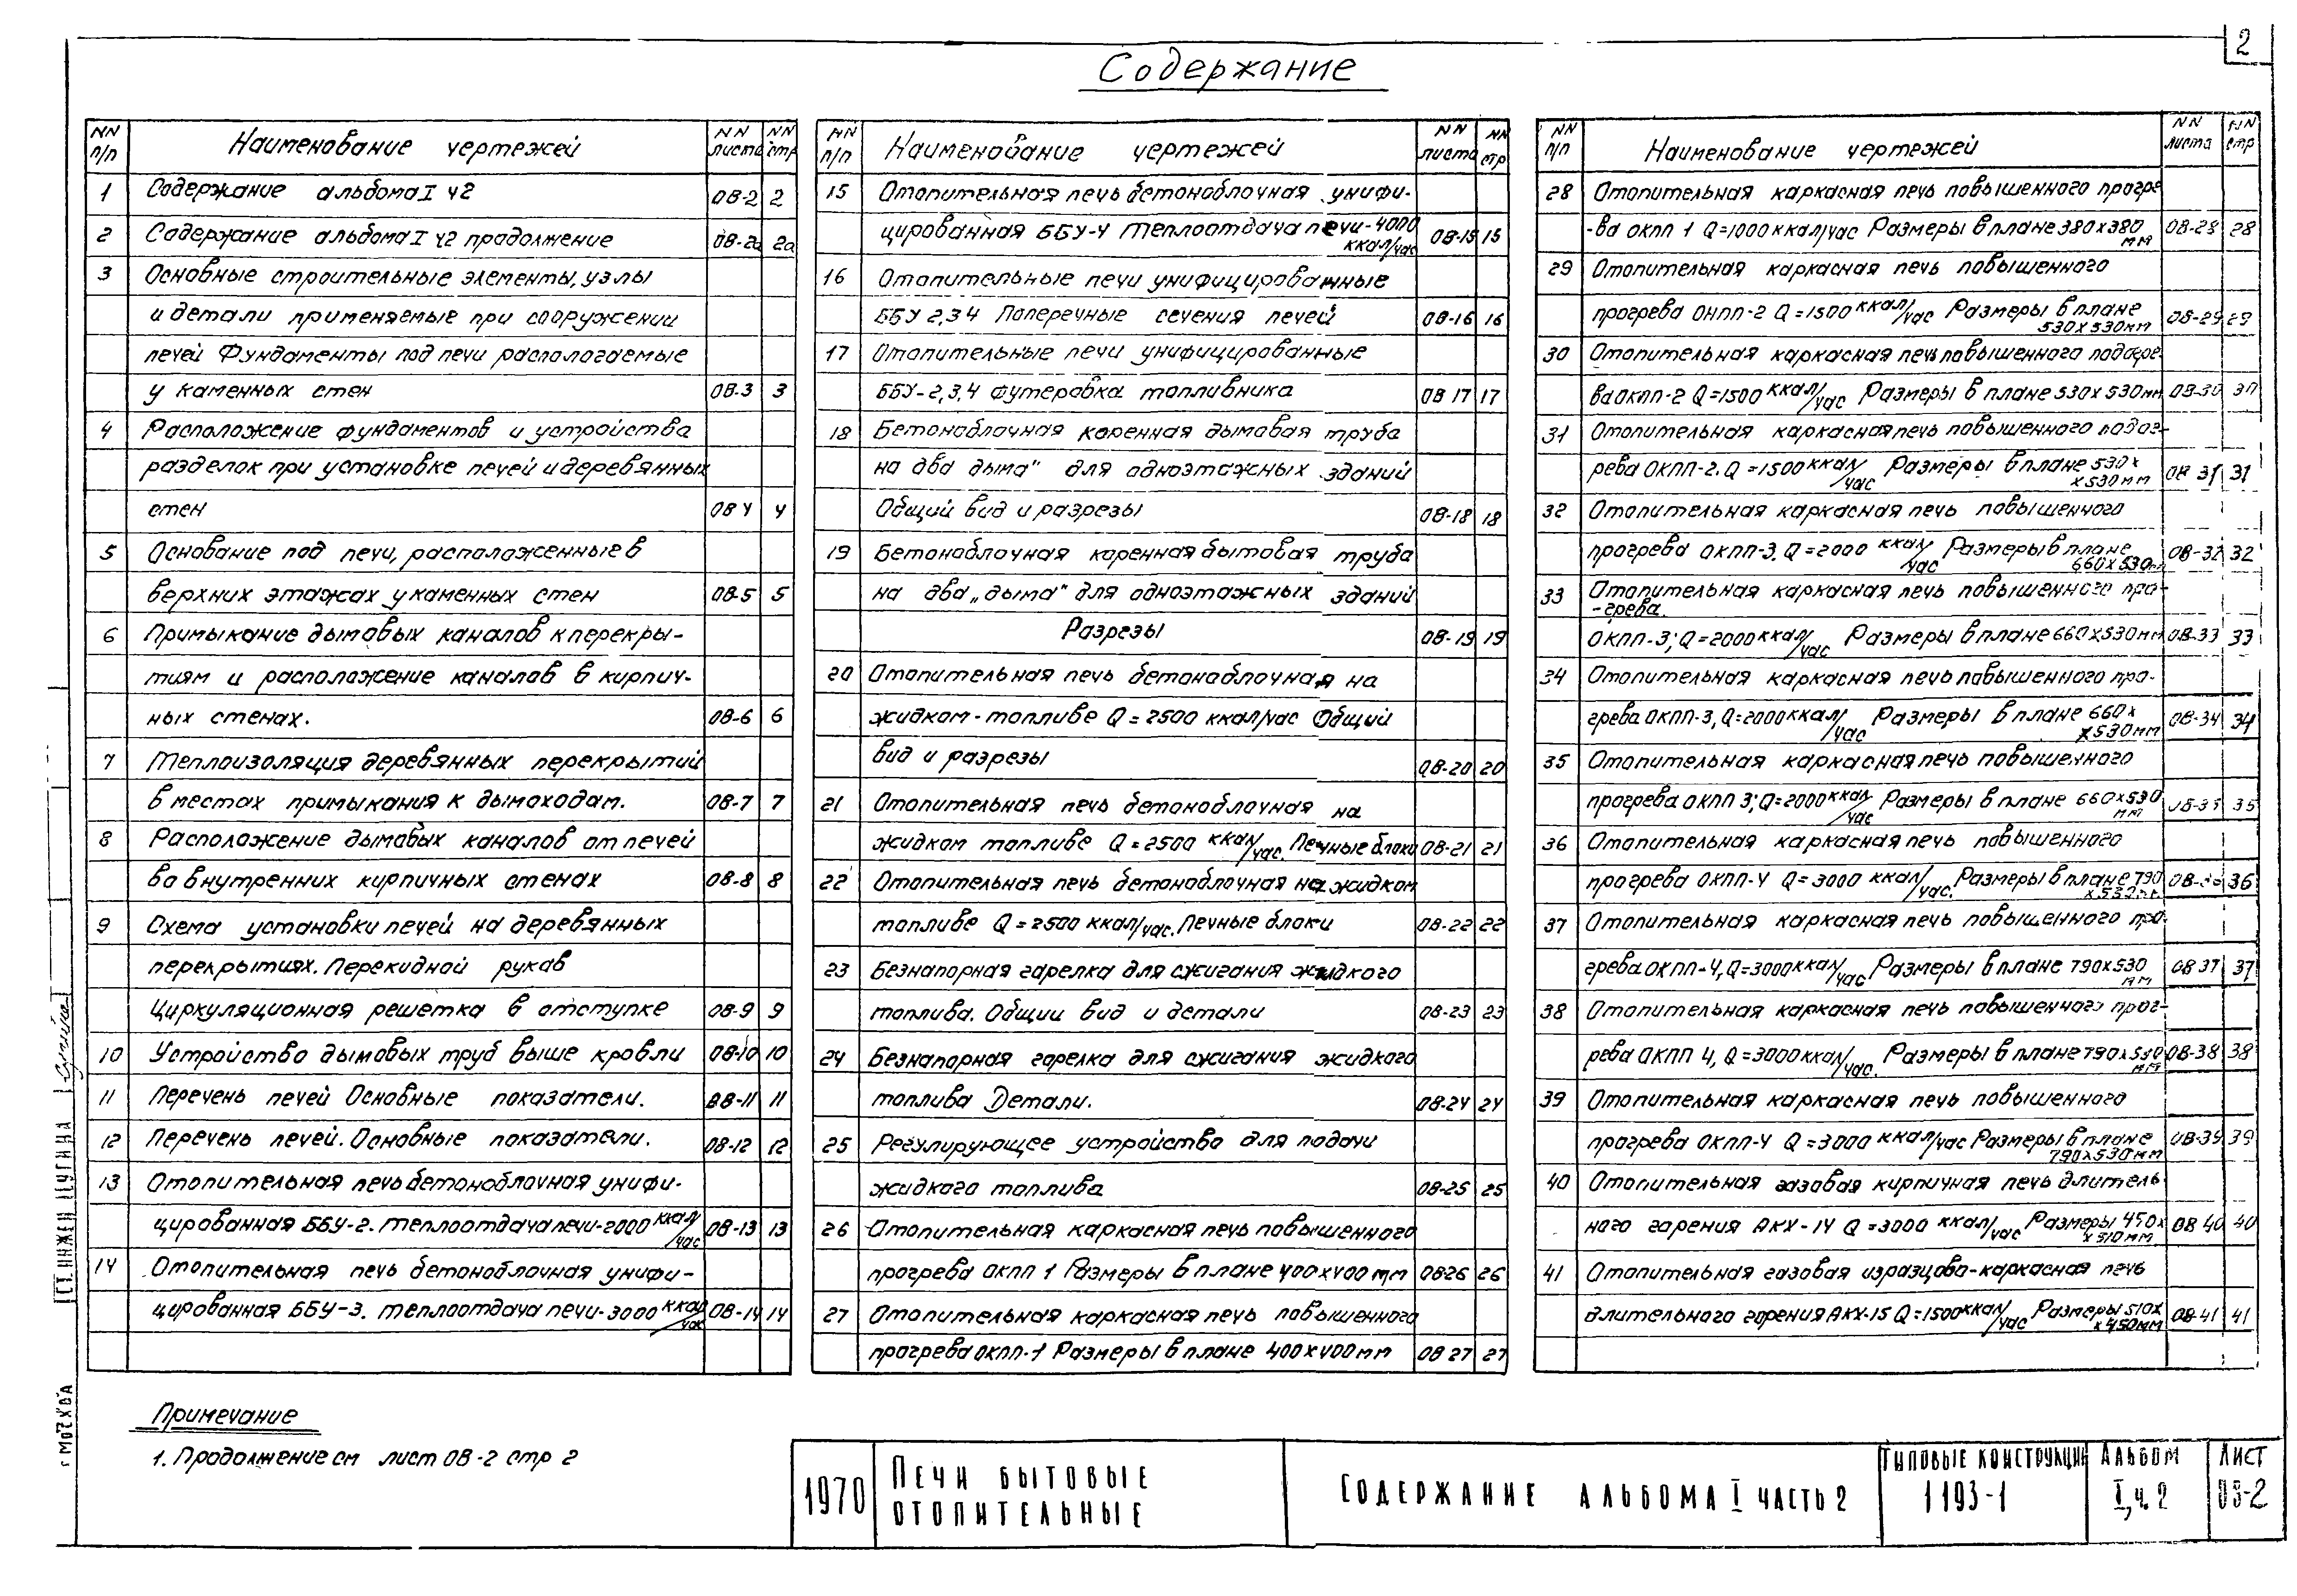 2
Содержание
NN п/п Наименование чертежей NN листа NN стр
1 Содержание альбома I ч2 ОВ-2 2
2 Содержание альбома I ч2 продолжение ОВ-2а 2а
3 Основные строительные элементы, узлы
и детали применяемые при сооружении
печей Фундаменты под печи распологаемые
у каменных стен ОВ-3 3
4 Расположение фундаментов и устройства
разделок при установке печей и деревянных
стен ОВ 4 4
5 Основание под печи, расположенные в
верхних этажах у каменных стен ОВ-5 5
6 Примыкание дымовых каналов к перекры-
тиям и расположение каналов в кирпич-
ных стенах. ОВ-6 6
7 Теплоизоляция деревянных перекрытий
в местах примыкания к дымоходам. ОВ-7 7
8 Расположение дымовых каналов от печей
во внутренних кирпичных стенах ОВ-8 8
9 Схема установки печей на деревянных
перекрытиях. Перекидной рукав
Циркуляционная решетка в отступке ОВ-9 9
10 Устройство дымовых труб выше кровли ОВ-10 10
11 Перечень печей Основные показатели. ОВ-11 11
12 Перечень печей. Основные показатели. ОВ-12 12
13 Отопительная печь бетоноблочная унифи-
цированная ББУ-2. теплоотдача печи-2000 ккал/час ОВ-13 13
14 Отопительная печь бетоноблочная унифи-
цированная ББУ-3. теплоотдача печи-3000 ккал/час ОВ-14 14
NN п/п Наименование чертежей NN листа NN стр
15 Отопительная печь бетоноблочная унифи-
цированная ББУ-4 теплоотдача печи-4000 ккал/час ОВ-15 15
16 Отопительные печи унифицированные
ББУ 2,3 4 Поперечные сечения печей ОВ-16 16
17 Отопительные печи унифицированные
ББУ-2,3,4 Футеровка топливника ОВ 17 17
18 Бетоноблочная коренная дымовая труба
на два дыма" для одноэтажных зданий
Общий вид и разрезы ОВ-18 18
19 Бетоноблочная коренная бытовая труба
на два „дыма" для одноэтажных зданий
Разрезы ОВ-19 19
20 Отопительная печь бетоноблочная на
жидком-топливе Q = 2500 ккал/час Общий
вид и разрезы ОВ-20 20
21 Отопительная печь бетоноблочная на
жидком топливе Q = 2500 ккал/час. Печные блоки ОВ-21 21
22 Отопительная печь бетоноблочная на жидком
топливе Q = 2500 ккал/час. Печные блоки ОВ-22 22
23 Безнапорная горелка для сжигания жидкого
топлива. Общии вид и детали ОВ-23 23
24 Безнапорная горелка для сжигания жидкого
топлива Детали. ОВ-24 24
25 Регулирующее устройство для подачи
жидкого топлива ОВ-25 25
26 Отопительная каркасная печь повышенного
прогрева ОКПП 1 Размеры в плане 400х400 мм ОВ26 26
27 Отопительная каркасная печь повышенного
прогрева ОКПП-1 Размеры в плане 400х400мм ОВ 27 27
NN п/п Наименование чертежей NN листа NN стр
28 Отопительная каркасная печь повышенного прогре
-ва ОКПП 1 Q=1000 ккал/час Размеры в плане 380х380 мм ОВ-28 28
29 Отопительная каркасная печь повышенного
прогрева ОКПП-2 Q = 1500 ккал/час Размеры в плане 530х530мм ОВ-29 29
30 Отопительная каркасная печь повышенного подогре-
ва ОКПП-2 Q =1500 ккал/час Размеры в плане 530х530мм ОВ-30 30
31 Отопительная каркасная печь повышенного подог-
рева ОКПП-2. Q =1500 ккал/час Размеры в плане 530х х530мм ОВ 31 31
32 Отопительная каркасная печь повышенного
прогрева ОКПП-3. Q =2000 ккал/час Размеры в плане 660х530мм ОВ-32 32
33 Отопительная каркасная печь повышенного про-
-грева.
ОКПП-3; Q =2000 ккал/час Размеры в плане 660х530мм ОВ-33 33
34 Отопительная каркасная печь повышенного про-
грева ОКПП-3, Q=2000 ккал/час Размеры в плане 660х х530мм ОВ-34 34
35 Отопительная каркасная печь повышенного
прогрева ОКПП 3; Q=2000 ккал/час Размеры в плане 660х530 мм ОВ-35 35
36 Отопительная каркасная печь повышенного
прогрева ОКПП-4 Q = 3000 ккал/час. Размеры в плане 790 х530мм ОВ-36 36
37 Отопительная каркасная печь повышенного про-
грева ОКПП-4, Q=3000 ккал/час Размеры в плане 790х530 мм ОВ 37 37
38 Отопительная каркасная печь повышенного прог-
рева ОКПП 4, Q =3000 ккал/час. Размеры в плане 790х530 мм ОВ-38 38
39 Отопительная каркасная печь повышенного
прогрева ОКПП-4 Q =3000 ккал/час Размеры в плане 790х530мм ОВ-39 39
40 Отопительная газовая кирпичная печь длитель-
ного горения АКХ-14 Q =3000 ккал/час Размеры 450х х510мм ОВ 40 40
41 Отопительная газовая изразцово-каркасная печь
длительного горения АКХ-15 Q =1500 ккал/час Размеры 510х х450мм ОВ-41 41
Примечание
1. Продолжение см лист ОВ-2 стр 2
1970
Печи бытовые
отопительные
Содержание альбома I часть 2
Типовые конструкции
1193-1
Альбом
I, ч. 2
Лист
ОВ-2
Ст. инжен
г Москва